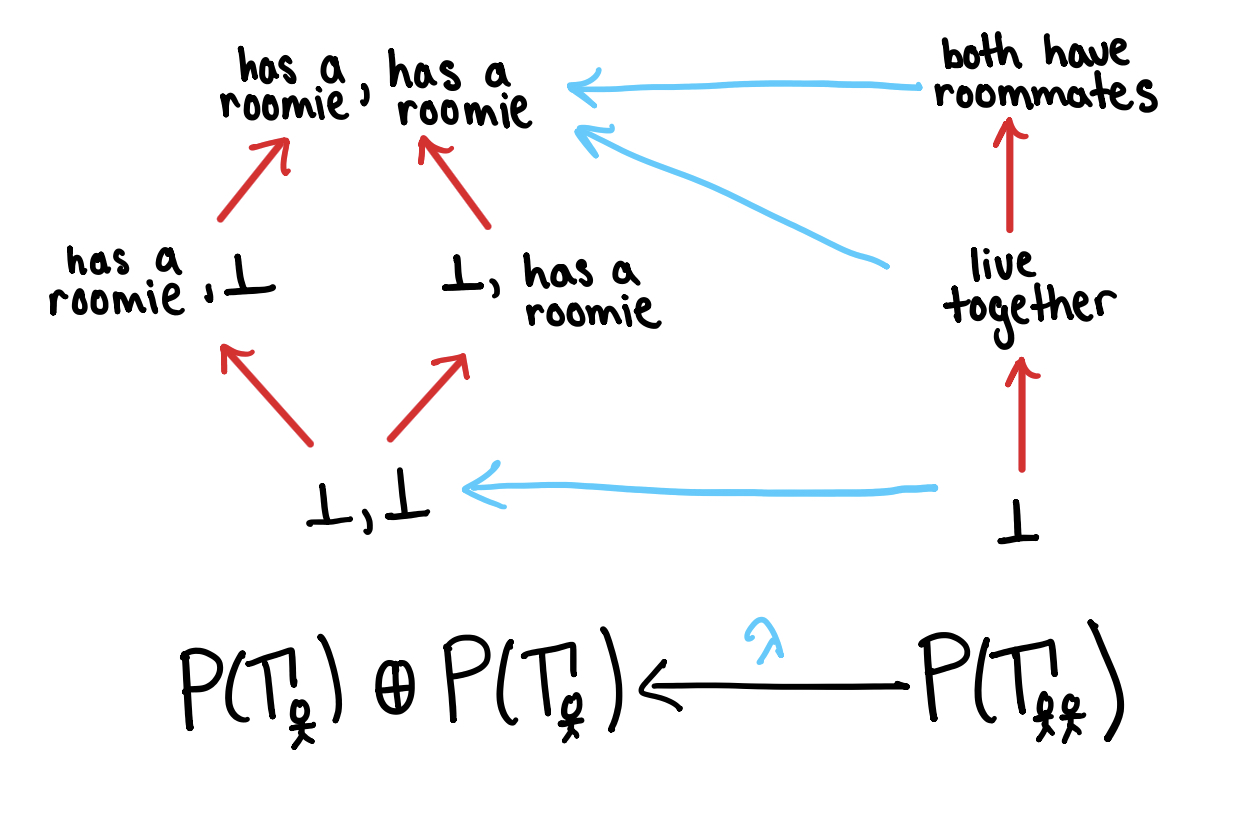 has a, has a
roomie roomie
both have
roommates
has a
roomie, ⊥
⊥, has a
roomie
live
together
⊥, ⊥
⊥
λ
P(T) ⊕ P(T) ← P(T)